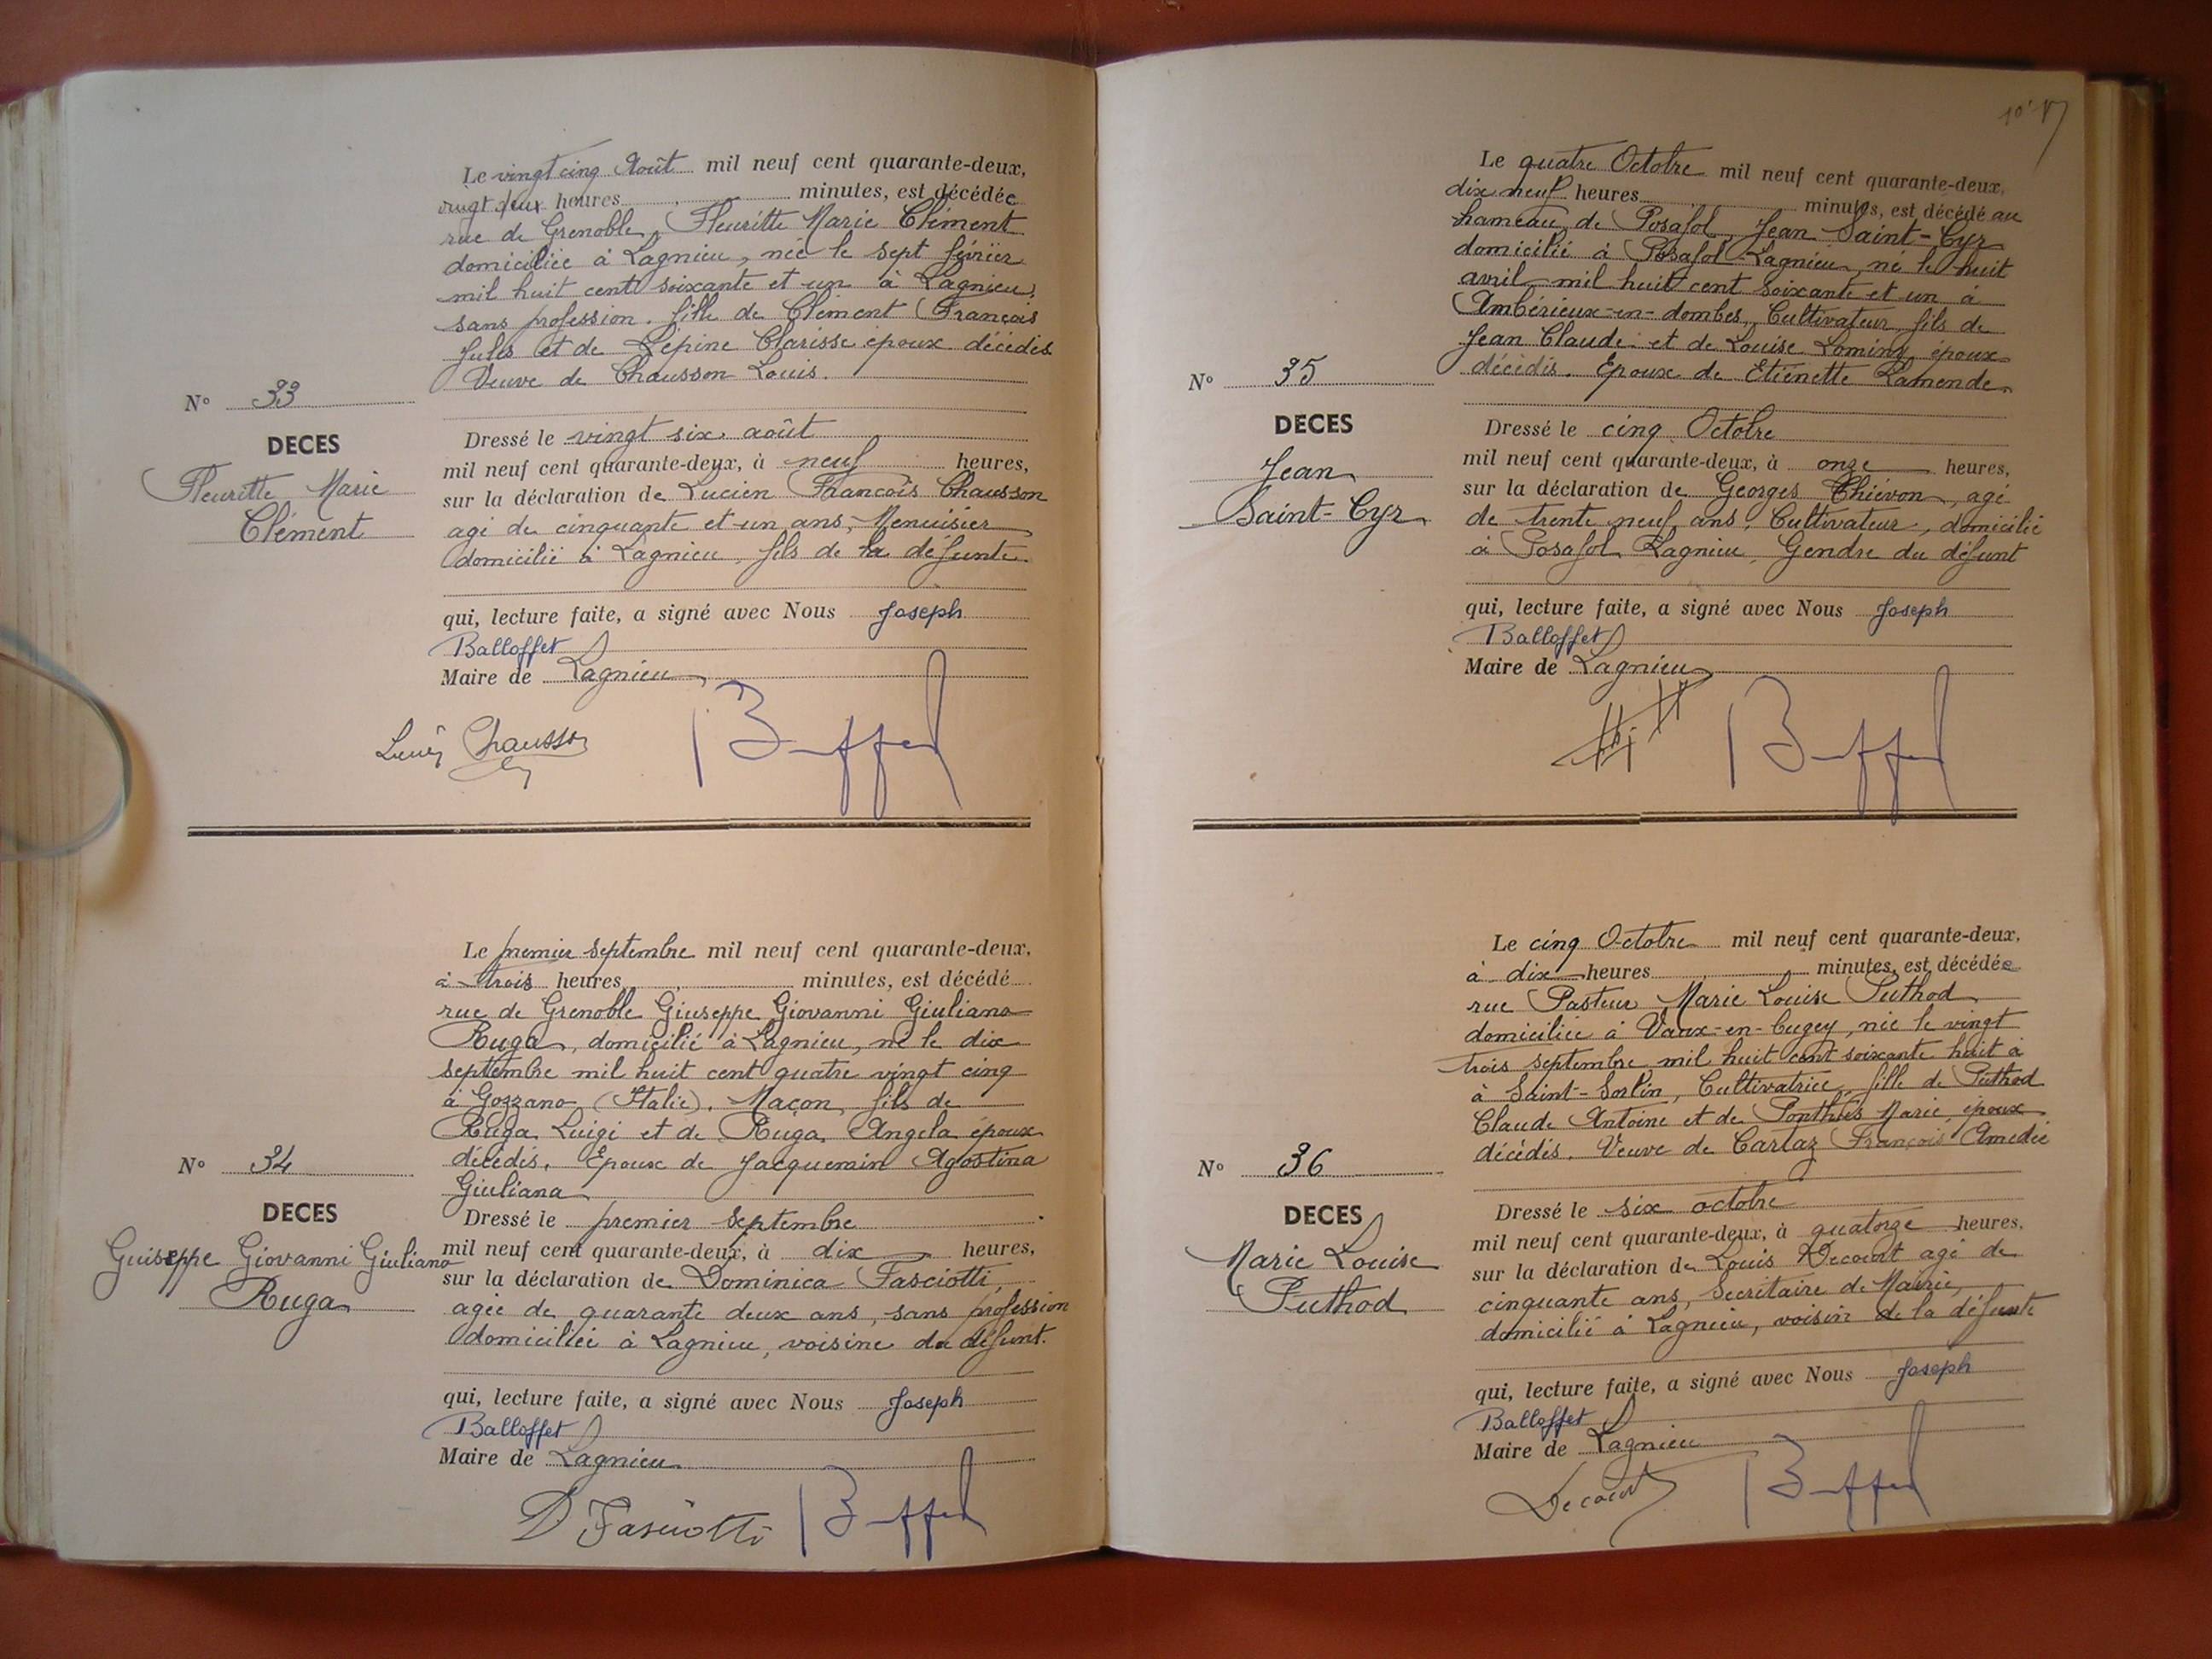 Le vingt cinq Août mil neuf cent quarante-deux,
vingt deux heures minutes, est décédée
rue de Grenoble, Fleuritte Marie Clément
domiciliée à Lagnieu, née le sept février
mil huit cent soixante et un à Lagnieu,
sans profession. fille de Clément François
Jules et de Lépine Clarisse époux décédés
Veuve de Chausson Louis.
N° 33
DECES
Fleuritte Marie
Clément
Dressé le vingt six août
mil neuf cent quarante-deux, à neuf heures,
sur la déclaration de Lucien François Chausson
agé de cinquante et un ans, Menuisier
domicilié à Lagnieu, fils de la défunte
qui, lecture faite, a signé avec Nous Joseph
Balloffet
Maire de Lagnieu
Lucien Chausson
Le premier septembre mil neuf cent quarante-deux,
à trois heures minutes, est décédé
rue de Grenoble Giuseppe Giovanni Giuliano
Ruga, domicilié à Lagnieu, né le dix
septembre mil huit cent quatre vingt cinq
à Gozzano (Italie). Maçon, fils de
Ruga Luigi et de Ruga Angela époux
décédés. Epoux de Jacquemain Agostina
Giuliana
N° 34
DECES
Guiseppe Giovanni Giuliano
Ruga
Dressé le premier septembre
mil neuf cent quarante-deux, à dix heures,
sur la déclaration de Dominica Fasciotti,
agée de quarante deux ans, sans profession
domiciliée à Lagnieu, voisine du défunt.
qui, lecture faite, a signé avec Nous Joseph
Balloffet
Maire de Lagnieu
D Fasciotti
Le quatre Octobre mil neuf cent quarante-deux,
dix neuf heures minutes, est décédé au
hameau de Posafol, Jean Saint-Cyr
domicilié à Posafol Lagnieu, né le huit
avril mil huit cent soixante et un à
Ambérieux-en-dombes, Cultivateur, fils de
Jean Claude et de Louise époux
décédés. Epoux de Etiénette Lamende
N° 35
DECES
Jean
Saint-Cyr
Dressé le cinq Octobre
mil neuf cent quarante-deux, à onze heures,
sur la déclaration de Georges Thiévon, agé
de trente neuf ans, Cultivateur, domicilié
à Posafol Lagnieu, Gendre du défunt
qui, lecture faite, a signé avec Nous Joseph
Balloffet
Maire de Lagnieu
Le cinq Octobre mil neuf cent quarante-deux,
à dix heures minutes, est décédée
rue Pasteur Marie Louise Puthod
domiciliée à Vaux-en-bugey, née le vingt
trois septembre mil huit cent soixante huit à
à Saint-Sorlin, Cultivatrice, fille de Puthod
Claude Antoine et de Ponthus Marie, époux
décédés. Veuve de Cartaz François Amedée
N° 36
DECES
Marie Louise
Puthod
Dressé le six octobre
mil neuf cent quarante-deux, à quatorze heures,
sur la déclaration de Louis Decourt agé de
cinquante ans, Secrétaire de Mairie,
domicilié à Lagnieu, voisin de la défunte
qui, lecture faite, a signé avec Nous Joseph
Balloffet
Maire de Lagnieu
Decourt